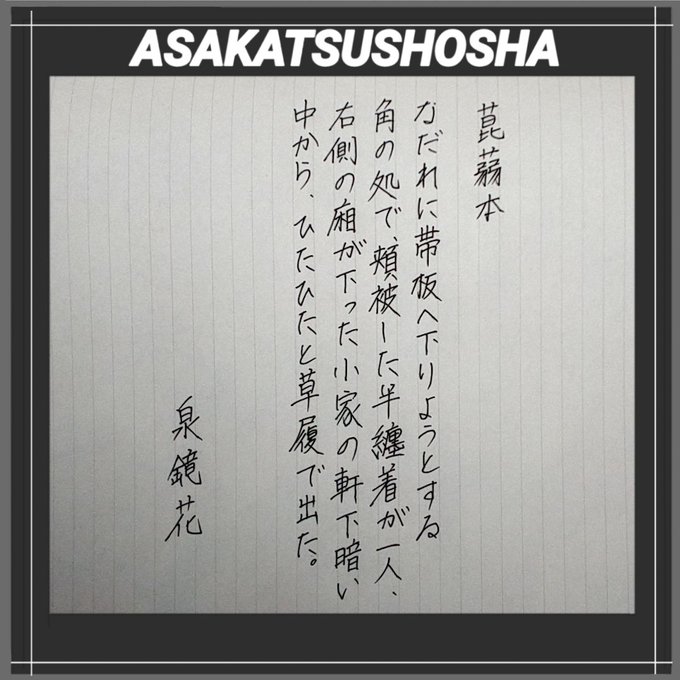 ASAKATSUSHOSHA
菎蒻本
なだれに帯板へ下りようとする
角の処で、頬被した半纏着が一人、
右側の廂が下った小家の軒下暗い
中から、ひたひたと草履で出た。
泉鏡花